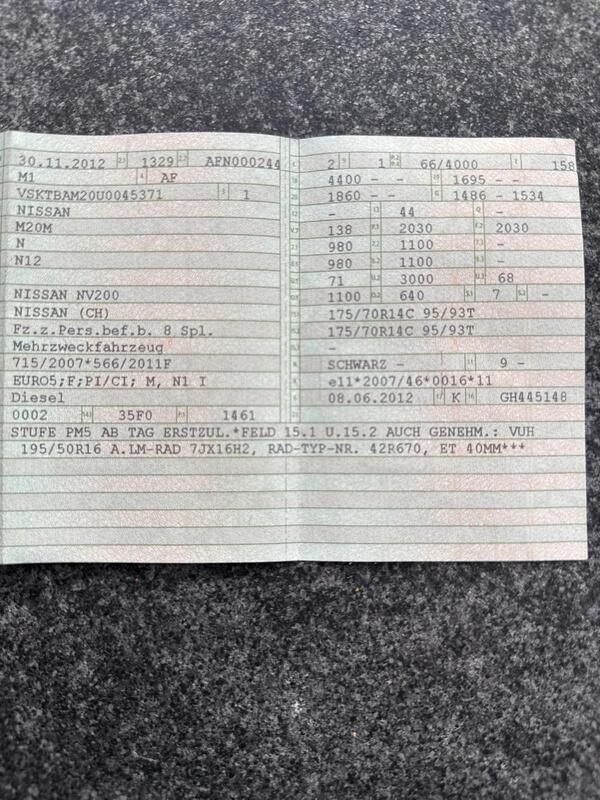 30.11.2012 1329 AFN000244
M1 AF
VSKTBAM20U0045371 1
NISSAN
M20M
N
N12
NISSAN NV200
NISSAN (CH)
Fz.z.Pers.bef.b. 8 Spl.
Mehrzweckfahrzeug
715/2007*566/2011F
EURO5;F;PI/CI; M, N1 I
Diesel
0002 35F0 1461
2 1 66/4000 158
4400 - - 1695 - -
1860 - - 1486 - 1534
- 44 -
138 2030 2030
980 1100 -
980 1100 -
71 3000 68
1100 640 7 -
175/70R14C 95/93T
175/70R14C 95/93T
-
SCHWARZ - 9 -
e11*2007/46*0016*11
08.06.2012 K GH445148
STUFE PM5 AB TAG ERSTZUL.*FELD 15.1 U.15.2 AUCH GENEHM.: VUH
195/50R16 A.LM-RAD 7JX16H2, RAD-TYP-NR. 42R670, ET 40MM***